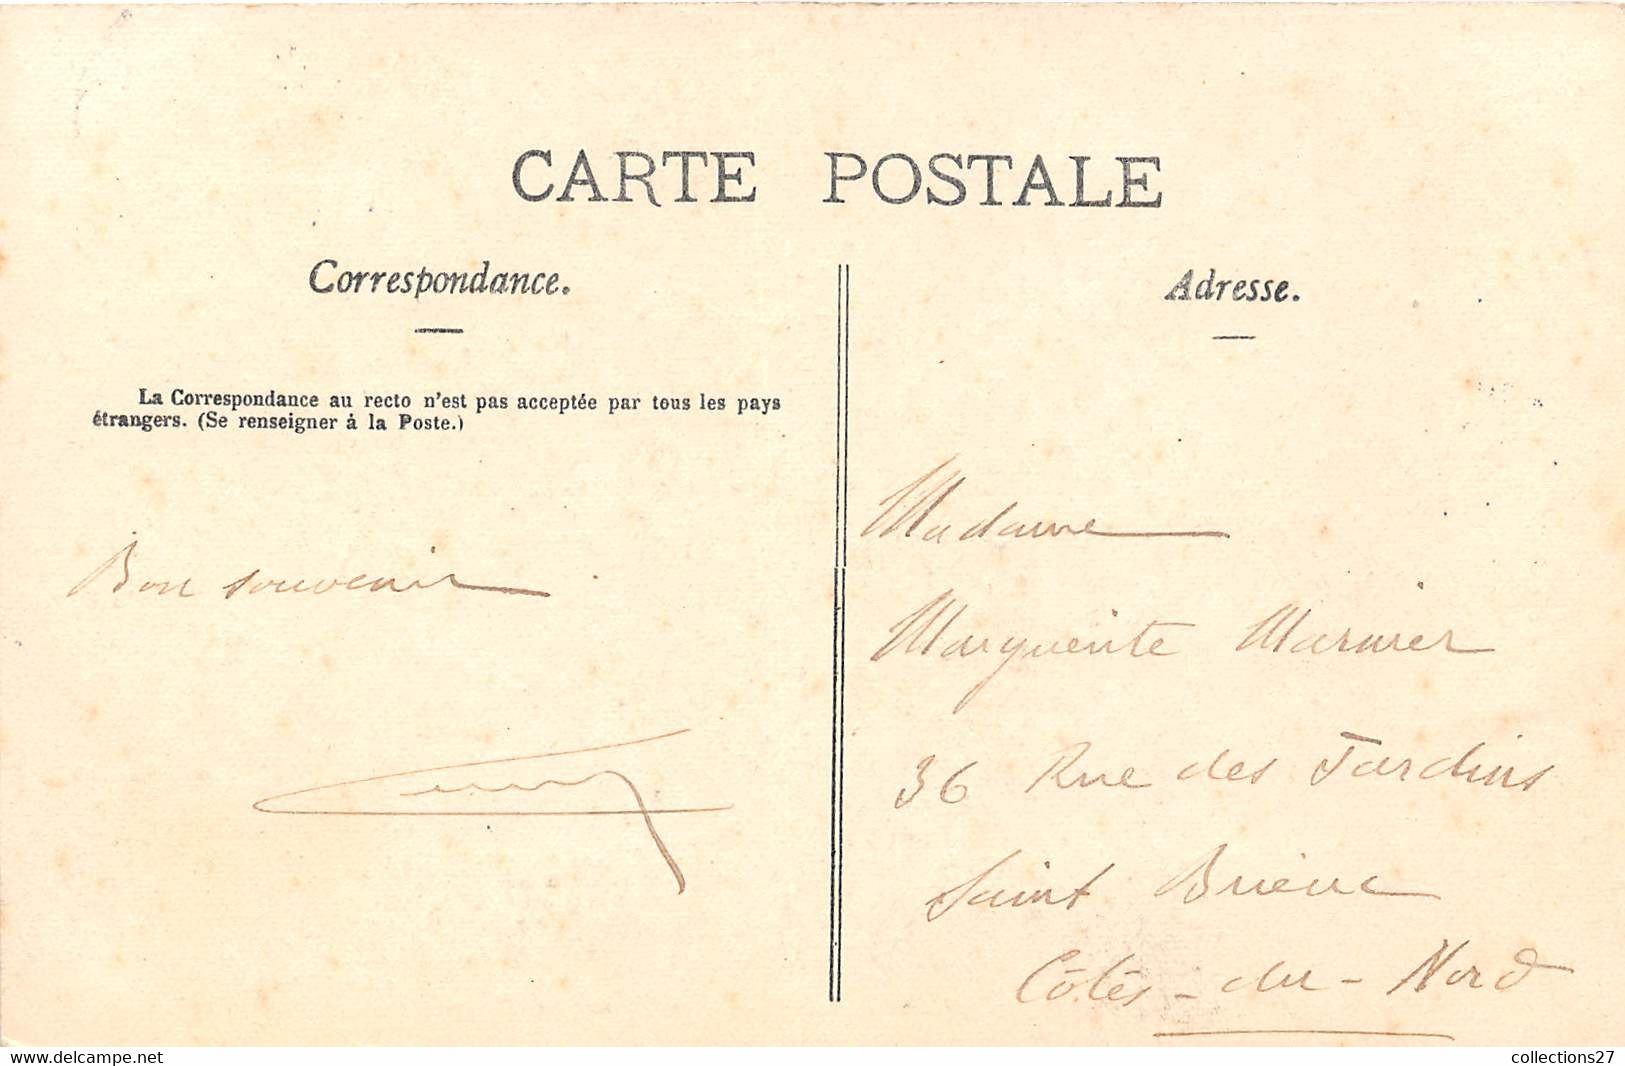 CARTE POSTALE
Correspondance.
La Correspondance au recto n'est pas acceptée par tous les pays
étrangers. (Se renseigner à la Poste.)
Bon souvenir
Adresse.
Madame
Marguerite Marnier
36 Rue des Jardins
Saint Brieuc
Côtes-du-Nord
www.delcampe.net
collections27